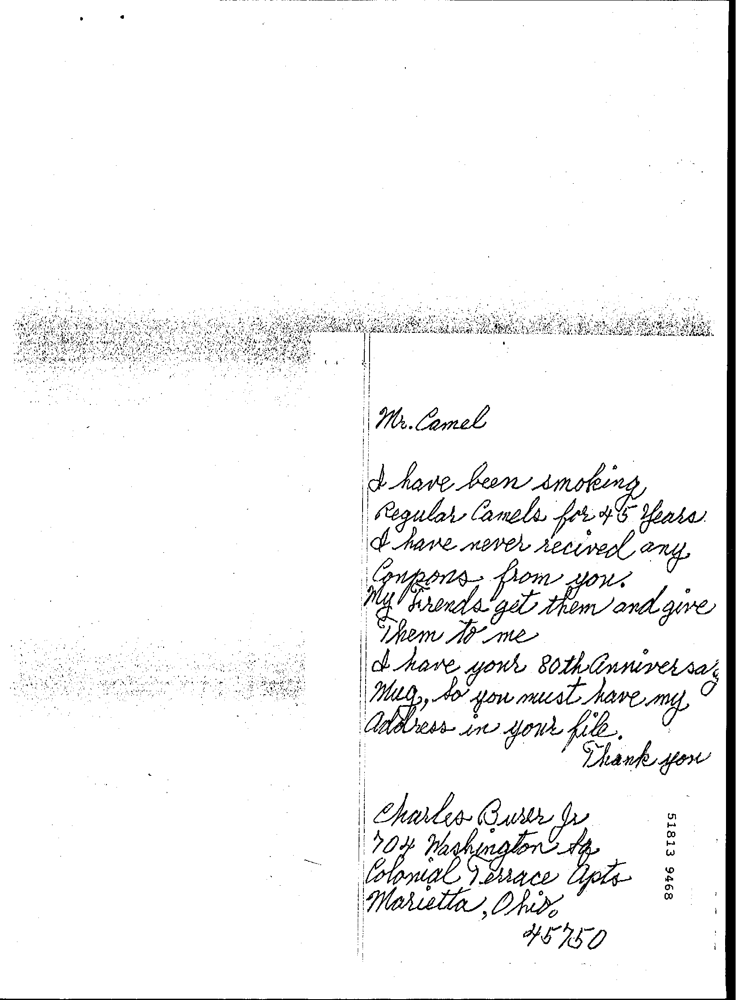 Mr. Camel
I have been smoking
Regular Camels for 45 Years.
I have never recived any
Conpons from you.
My Firends get them and give
Them to me
I have your 80th Anniversay
Mug, so you must have my
Address in your file.
Thank you
Charles Burer Jr
704 Washington Sq
Colonial Terrace Apts
Marietta, Ohio.
45750
51813 9468